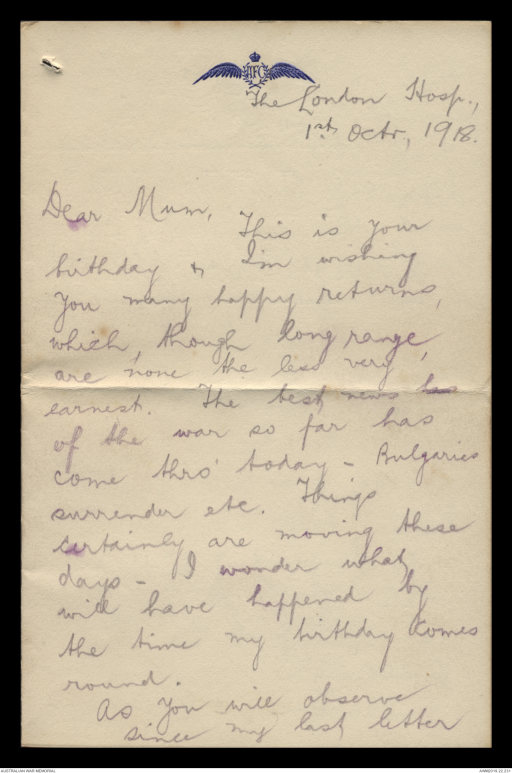 AFC
The London Hosp.,
1st Octr, 1918.
Dear Mum,
This is your
birthday & I'm wishing
you many happy returns,
which, though long range,
are none the less very
earnest. The best news
of the war so far has
come thro' today - Bulgaries
surrender etc. Things
certainly are moving these
days - I wonder what
will have happened by
the time my birthday comes
round.
As you will observe
since my last letter
AUSTRALIAN WAR MEMORIAL